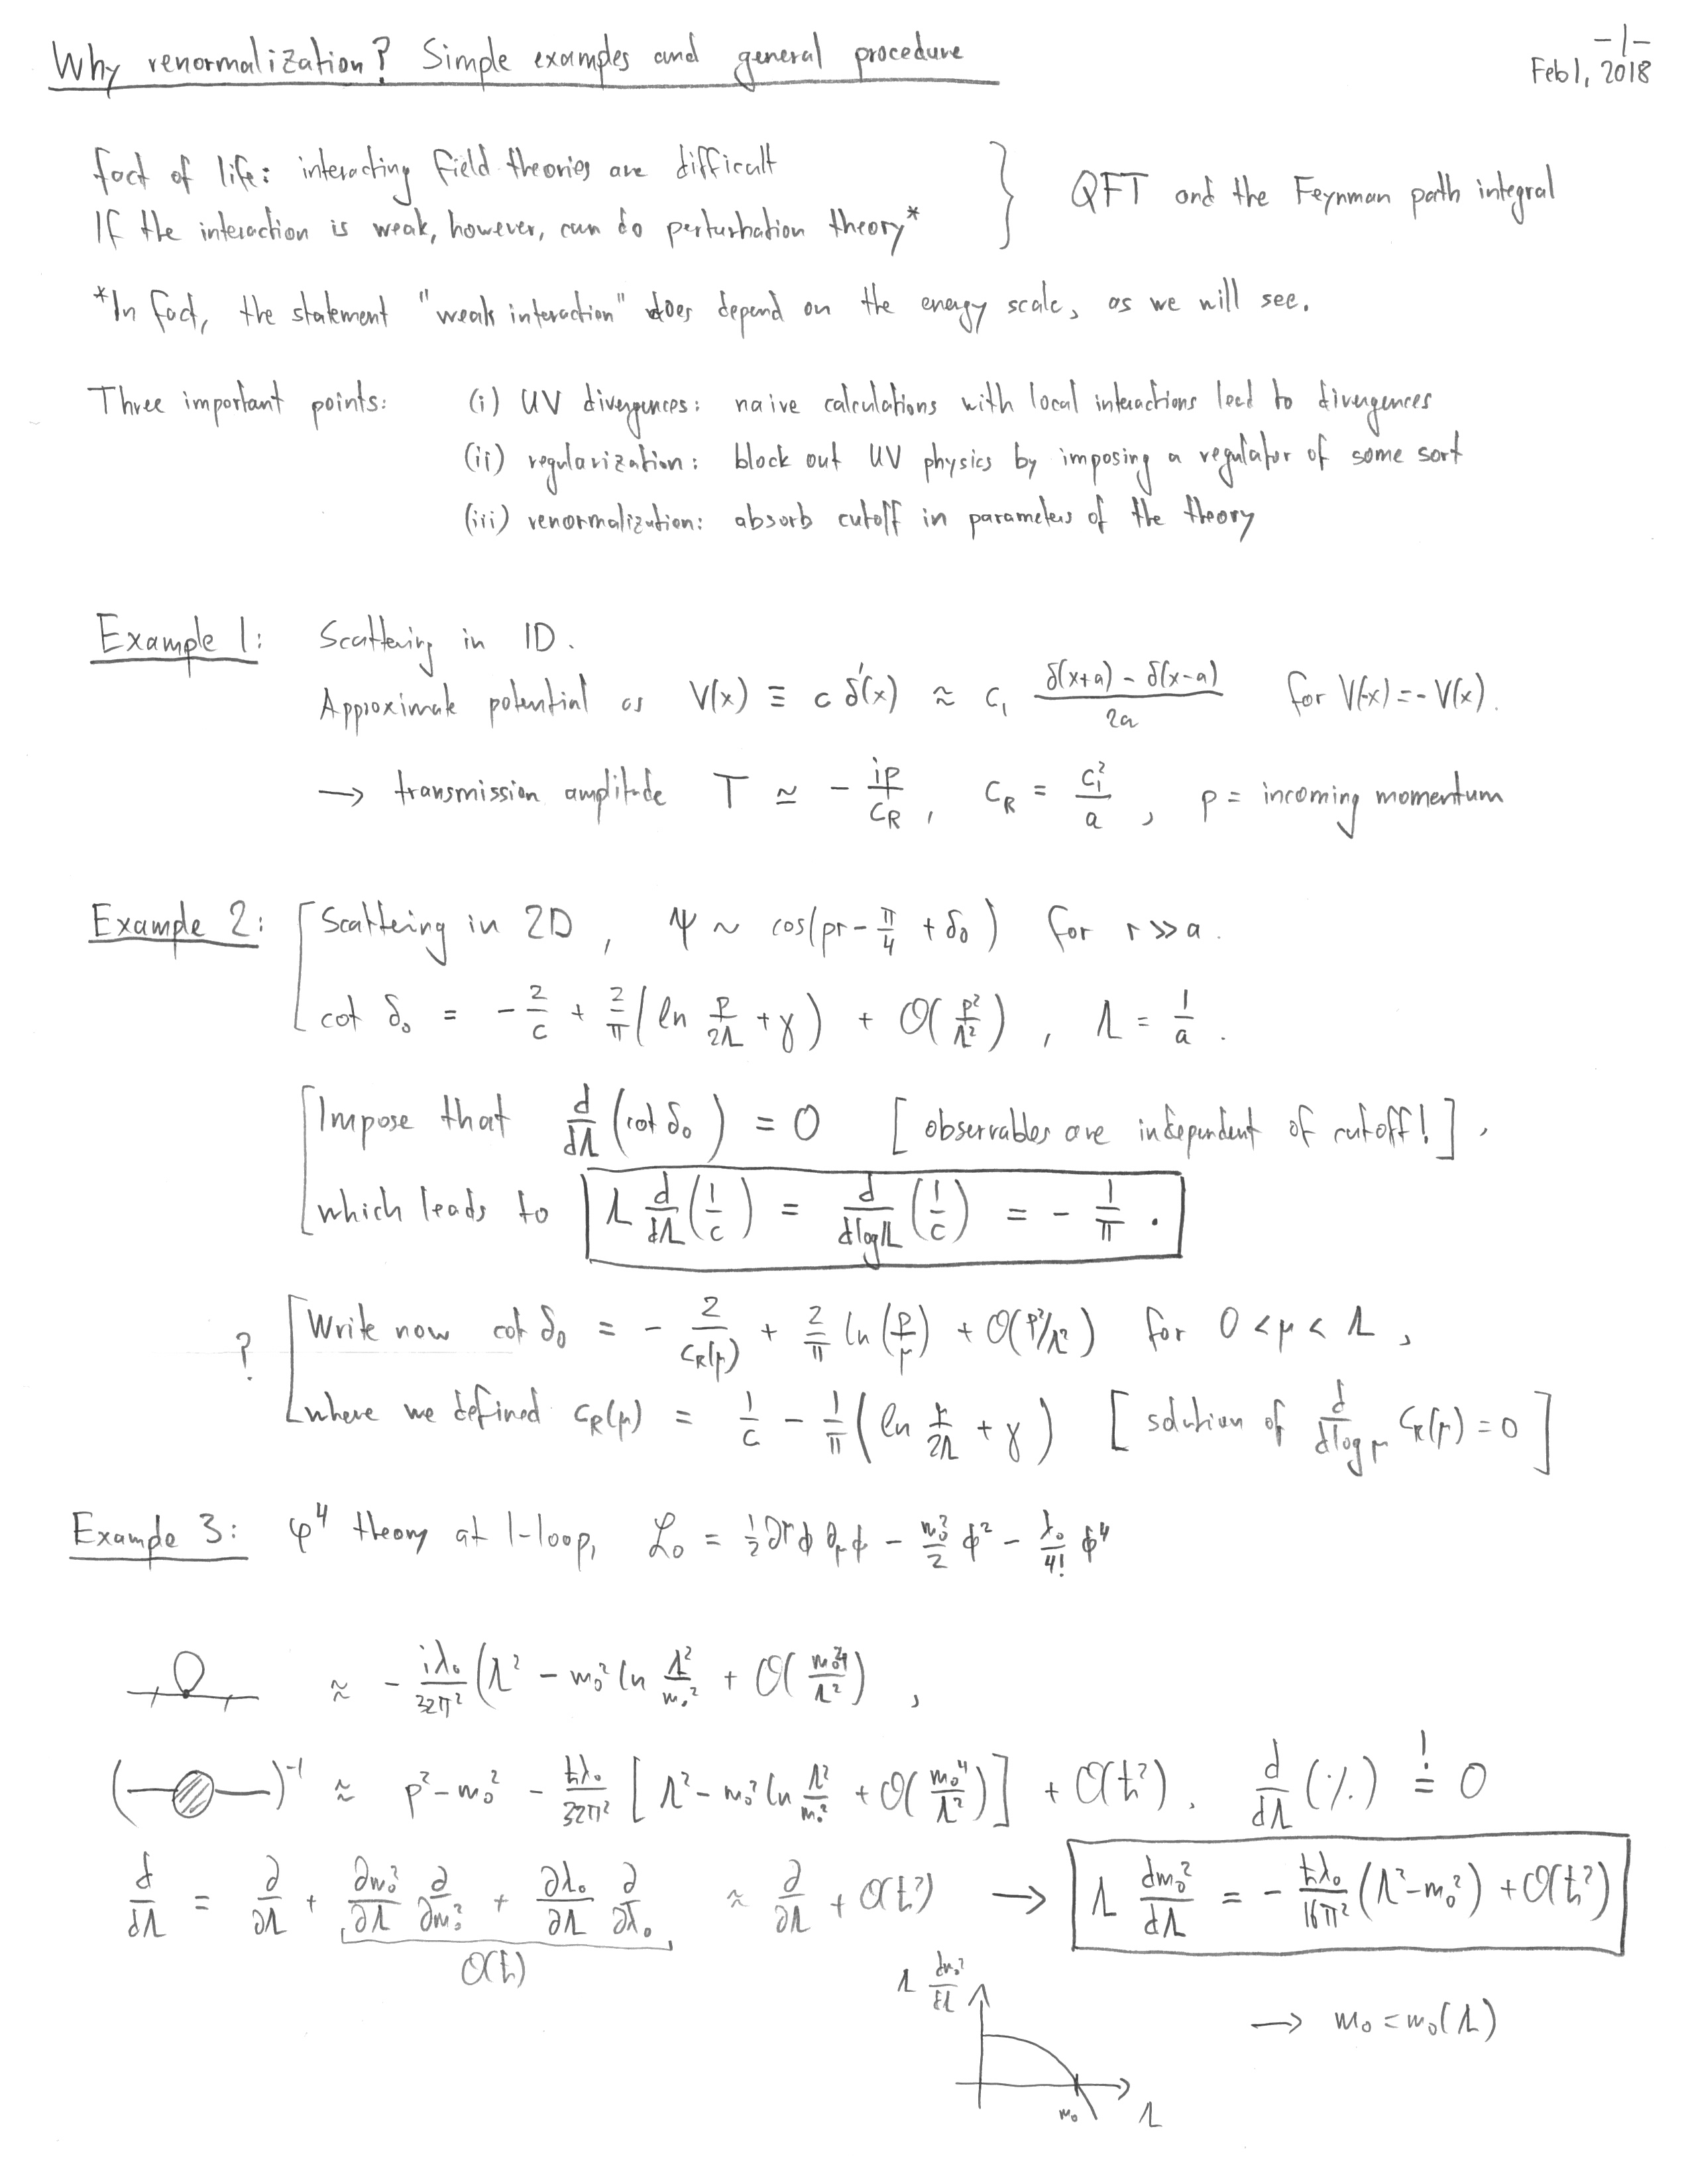 -1-
Why renormalization? Simple examples and general procedure
Feb 1, 2018
fact of life: interacting field theories are difficult
If the interaction is weak, however, can do perturbation theory*
} QFT and the Feynman path integral
*In fact, the statement "weak interaction" does depend on the energy scale, as we will see.
Three important points: (i) UV divergences: naive calculations with local interactions lead to divergences
(ii) regularization: block out UV physics by imposing a regulator of some sort
(iii) renormalization: absorb cutoff in parameters of the theory
Example 1: Scattering in 1D.
Approximate potential as V(x) ≡ c δ'(x) ≈ c₁ (δ(x+a) - δ(x-a))/2a for V(-x) = -V(x).
→ transmission amplitude T ≃ - ip/c_R, c_R = c₁²/a, p = incoming momentum
Example 2: [Scattering in 2D, ψ ~ cos(pr - π/4 + δ₀) for r ≫ a.
cot δ₀ = -2/c + 2/π (ln p/2Λ + γ) + O(p²/Λ²), Λ = 1/a.
[Impose that d/dΛ (cot δ₀) = 0 [observables are independent of cutoff!],
which leads to Λ d/dΛ (1/c) = d/dlogΛ (1/c) = - 1/π.
? [Write now cot δ₀ = - 2/c_R(μ) + 2/π ln(p/μ) + O(p²/Λ²) for 0 < μ < Λ,
where we defined c_R(μ) = 1/c - 1/π (ln μ/2Λ + γ) [solution of d/dlogμ c_R(μ) = 0]
Exampe 3: φ⁴ theory at 1-loop, ℒ₀ = ½ ∂^μ ϕ ∂_μ ϕ - m₀²/2 ϕ² - λ₀/4! ϕ⁴
≈ - iλ₀/32π² (Λ² - m₀² ln Λ²/m₀² + O(m₀⁴/Λ²)),
( )⁻¹ ≈ p² - m₀² - ħλ₀/32π² [Λ² - m₀² ln Λ²/m₀² + O(m₀⁴/Λ²)] + O(ħ²), d/dΛ (٪) =! 0
d/dΛ = ∂/∂Λ + ∂m₀²/∂Λ ∂/∂m₀² + ∂λ₀/∂Λ ∂/∂λ₀ ≈ ∂/∂Λ + O(ħ²) → Λ dm₀²/dΛ = - ħλ₀/16π² (Λ² - m₀²) + O(ħ²)
O(ħ)
Λ dm₀²/dΛ
→ m₀ = m₀(Λ)
m₀ Λ